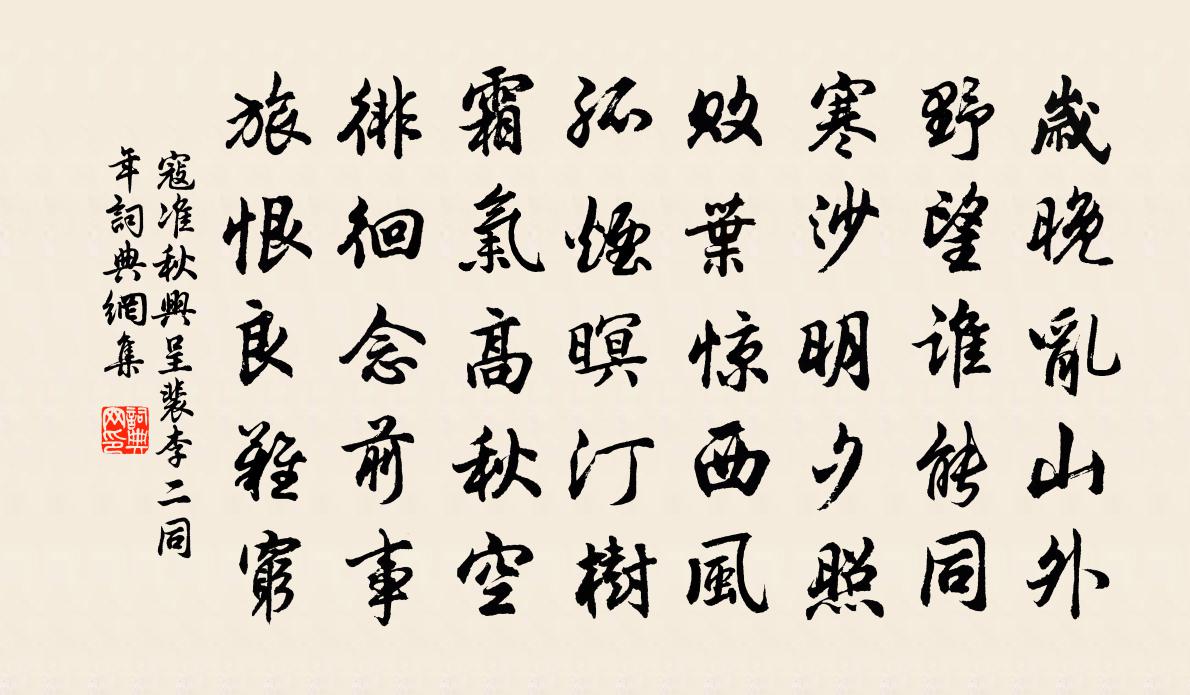 歲晚亂山外
野望誰能同
寒沙明夕照
敗葉惊西風
孤煙暝汀樹
霜氣高秋空
徘徊念前事
旅恨良難窮
寇准秋興呈裴李二同
年詞典網集
詞典
网印